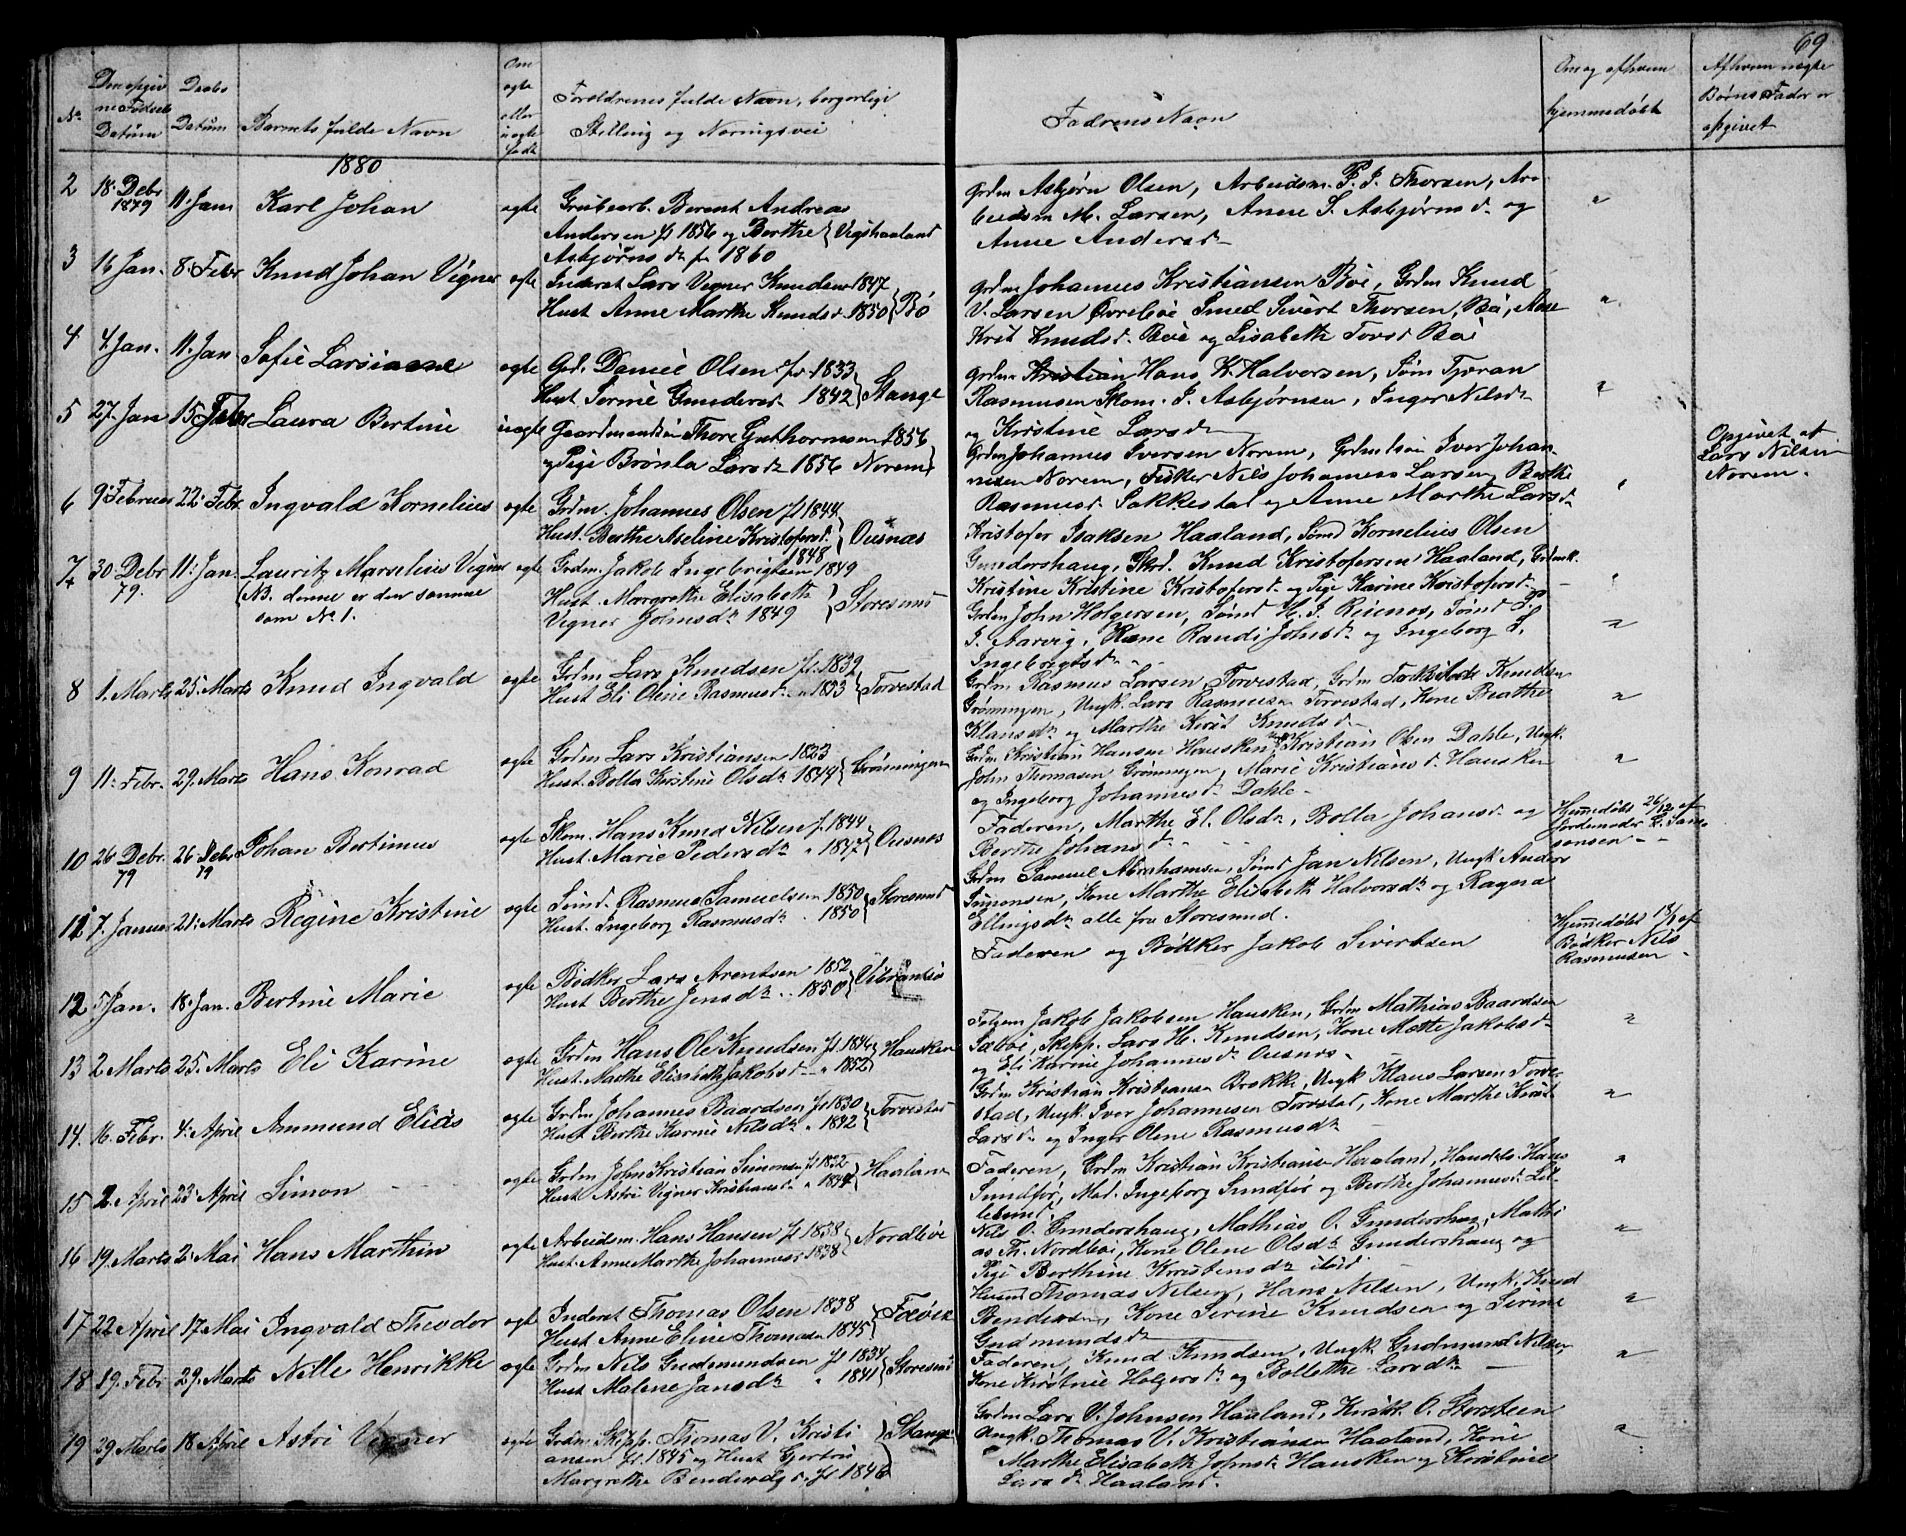 69
No.
Den opgiv
ne Fødsels
Datum
Daabs
Datum
Barnets fulde Navn
Om
ægte
eller
uægte
født
Forældrenes fulde Navn, borgerlige
Stilling og Næringsvei
Fadrenes Navn
Om og af hvem
hjemmedøbt
Af hvem uægte
Børns Fader er
opgivet
1880
2 18. Debr 1879 11. Jan Karl Johan ægte Grubearb. Berent Andreas
Andersen f. 1856 og Berthe Vigshaaland
Asbjørns dr. f. 1860
Grdm Asbjørn Olsen, Arbeidsm. P. J. Thorsen, Ar-
beidsm M. Larsen, Anne S. Asbjørns dr. og
Anne Andersdr
3 16 Jan. 8. Febr Knud Johan Vigner ægte Inderst Lars Vigner Knudsen 1847
Hust. Anne Marthe Knudsd. 1850 Bø
Grdm Johannes Kristiansen Bøe, Grdm Knud
V. Larsen Øvrebøe Smed Sivert Thorsen, Bø, Ane
Krist Knudsd. Bøe og Lisabeth Torsd Bøe
4 4. Jan. 11. Jan Sofie Larsianne ægte Grd. Daniel Olsen f. 1833
Hust. Serine Gundersd. 1842 Stange
Grdm Kristian Hans K. Halvorsen, Søn Tjøran
Rasmusen Skom. S. Asbjørnsen, Inger Nilsdr
og Kristine Larsdr
5 27. Jan 15 Febr Laura Bertine uægte Gaardmandssøn Thore Guthormsen 1856
og Pige Brønla Larsdr 1856 Norem
Grdm Johannes Iversen Norem, Grdmdsøn Iver Johan-
nesen Norem, Fisker Nils Johannes Larsen, Berthe
Rasmusd. Sakkestad og Anne Marthe Larsd.
Opgivet af
Lars Nilsen
Norem.
6 9. Februar 22. Febr. Ingvald Kornelius ægte Grdm. Johannes Olsen f. 1844
Hust. Berthe Aseline Kristofersd. 1848 Ousnæs
Kristofer Isaksen Haaland, Sømd Kornelius Olsen
Gundershaug, Skrd. Knud Kristofersen Haaland, Grdmk.
Kristine Kristine Kristofersd. og Pige Karine Kristofersd.
7 30 Debr 79. 11. Jan. Lauritz Marselius Vigner ægte Grdm. Jakob Ingebrigtsen 1849
(NB. denne er den samme
som No 1.
Hust. Margrethe Elisabeth
Vigner Johnsdr. 1849 Storesund
Grdm John Holgersen, Sømd H. J. Risenes, Sømd P.
J. Aarvig, Kone Randi Johnsdr og Ingeborg S.
Ingebrigtsd.
8 1. Marts 25. Marts Knud Ingvald ægte Grdm Lars Knudsen f. 1839
Hust Eli Olene Rasmusd. 1833 Torvestad
Grdm Rasmus Larsen Torvestad, Grdm Torkild Knudsen
Grønningen, Ungk. Lars Rasmusen Torvestad, Kone Beathe
Klausdr og Marthe Krist Knudsd.
9 11. Febr. 29. Marts Hans Konrad ægte Grdm Lars Kristiansen 1833
Hust. Bolla Kristine Olsdr. 1844 Grønningen
Grdm Kristian Hansen Hausken, Kristian Olsen Dahle, Ungk.
John Thomasen Grønningen, Marie Kristiansd. Hausken
og Ingeborg Johannesd. Dahle.
10 26 Debr. 79 26 Debr 79 Johan Bertinus ægte Skom. Hans Knud Nilsen f. 1844
Hust. Marie Pedersdr. 1847 Ousnes
Faderen, Marthe El. Olsdr., Bolla Johansd. og
Berthe Johansd.
Hjemmedøbt 26/12 af
Jordemoder L. Sam-
sonsen
11 7. Januar 21. Marts Regine Kristine ægte Sømd. Rasmus Samuelsen 1850
Hust. Ingeborg Rasmusdr. 1850 Storesund
Grdm Samuel Abrahamsen, Sømd Jan Nilsen, Ungk Anders
Simonsen, Kone Marthe Elisabeth Halvorsdr. og Ragna
Ellingsdr. alle fra Storesund.
12 5 Jan. 18. Jan. Bertine Marie ægte Bødker Lars Arentsen 1852
Hust Berthe Jensdr. 1850
Faderen og Bødker Jakob Sivertsen
Hjemmedøbt 13/1 af
Bødker Nils
Rasmusen
13 2 Marts 25. Marts Eli Karine ægte Grdm Hans Ole Knudsen f. 1846
Hust. Marthe Elisabeth Jakobsd. 1852 Hausken
Folgem Jakob Jakobsen Hausken, Grdm Mathias Baardsen
Sæbøe, Skipp. Lars H. Knudsen, Kone Mætte Jakobsd.
og Eli Karine Johannesd. Ousnes.
14. 16. Febr. 4. April Ammund Elias ægte Grdm Johannes Baardsen f. 1830
Hust Berthe Karine Nilsdr. 1842 Torvestad
Grdm Kristian Kristiansen Brekke, Ungk Klaus Larsen Torve-
stad, Ungk. Iver Johannesen Torvestad, Kone Marthe Krist
Larsd. og Inger Olene Rasmusdr.
15 2. April 23. April Simon ægte Grdm John Kristian Simonsen f 1832
Hust Astri Vigner Kristiansd. 1844 Haaland
Faderen, Grdm Kristian Kristiansen Haaland, Handels. Hans
Sundfør, Mad. Ingeborg Sundfør og Berthe Johannesd. Lit-
lesund.
16 19. Marts 2. Mai Hans Marthin ægte Arbeidsm. Hans Hansen f 1838
Hust. Anne Marthe Johannesen 1838 Nordbøe
Nils O. Gundershaug, Mathias O. Gundershaug, Mathi
as Th. Nordbøe, Kone Olene Olsdr. Gundershaug og
Pige Berthine Kristensdr. ibid
17 22 April 17. Mai Ingvald Theodor ægte Inderst Thomas Olsen 1838
Hust Anne Eline Thomasen 1845 Feøen
Thomas Nilsen, Hans Nilsen, Ungk. Knud
Bendersen, Kone Serine Knudsen og Serine
Gudmundsd.
18 19. Febr 29. Marts Nelle Henrikke ægte Grdm Nils Gudmundsen f 1834
Hust Malene Jansdr. 1841 Storesund
Faderen, Knud Knudsen, Ungk. Gudmund Nilsen
Kone Kristine Holgersd. og Bollethe Larsdr.
19 29. Marts 18 April Astri Vigner ægte Grdm. Skipp. Thomas V. Kristi
ansen f. 1845 og Hust Gjertrui
Margrethe Bendersdg. f. 1846 Stange
Grdm Lars V. Johnsen Haaland, Kirstk. O. Storsteen
Ungk. Thomas V. Kristiansen Haaland, Kone
Marthe Elisabeth Johnsdr Hausken og Kristine
Larsdr. Haaland.